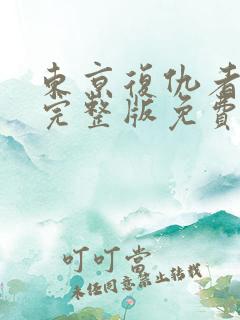 東京復仇者
完整版免費
叮叮當
未經同意禁止轉載